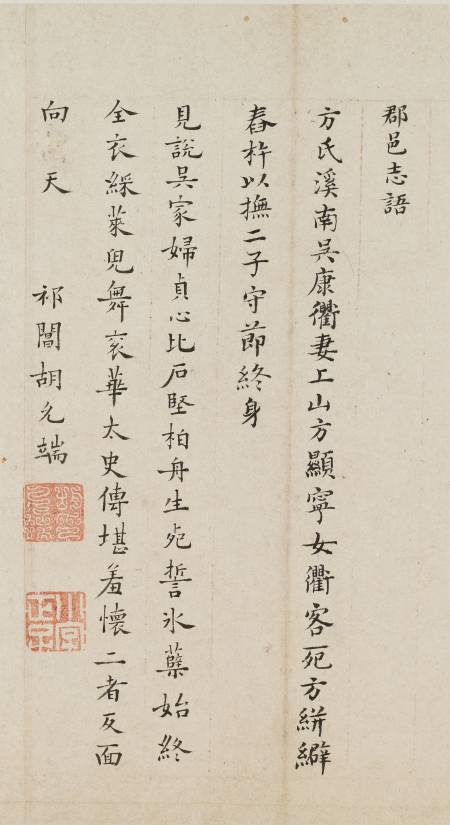 郡邑志語
方氏溪南吳康衢妻上山方顯寧女衢客死方絣繲
舂杵以撫二子守節終身
見說吳家婦貞心比石堅柏舟生死誓氷蘗始終
全衣綵萊兒舞袞華太史傳堪羞懷二者反面
向天
祁閶胡允端